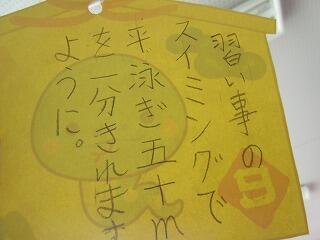 習い事の
スイミングで
平泳ぎ五十m
を一分きれます
ように。
日